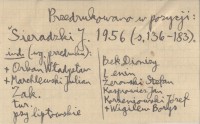 Przedrukowano w pozycji:
Sieradzki J. 1956 (s. 136-183).
ind (wg. przedruku):
+ Orkan Władysław
+ Marchlewski Julian
Żak.
tur.
psy liptowskie
Lenin
Żeromski Stefan
Kasprowicz Jan
Korzeniowski Józef
+ Wigilew Borys